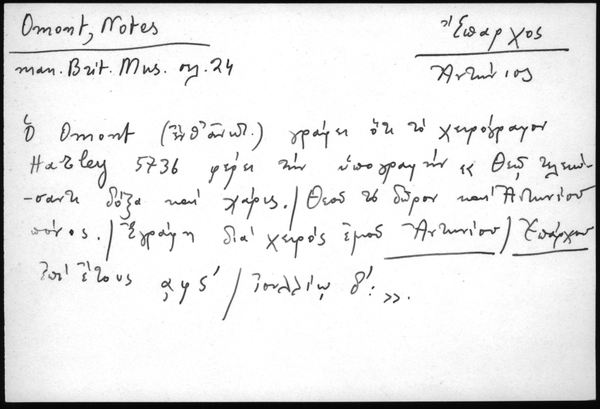 Omont, Notes
man. Brit. Mus. σγ. 24
Ἔπαρχος
Ἀντώνιος
Ὁ Omont (ἔνθ' ἀνωτ.) γράφει ὅτι τὸ χειρόγραφον
Harley 5736 φέρει τὴν ὑπογραφὴν «Θεῷ τελειώ-
-σαντι δόξα καὶ χάρις. / Θεοῦ τὸ δῶρον καὶ Ἀντωνίου
πόνος. / Ἐγράφη διὰ χειρὸς ἐμοῦ Ἀντωνίου / Ἐπάρχου
Ἐπὶ ἔτους αφϛ' / Ἰουλλίῳ δ': ».